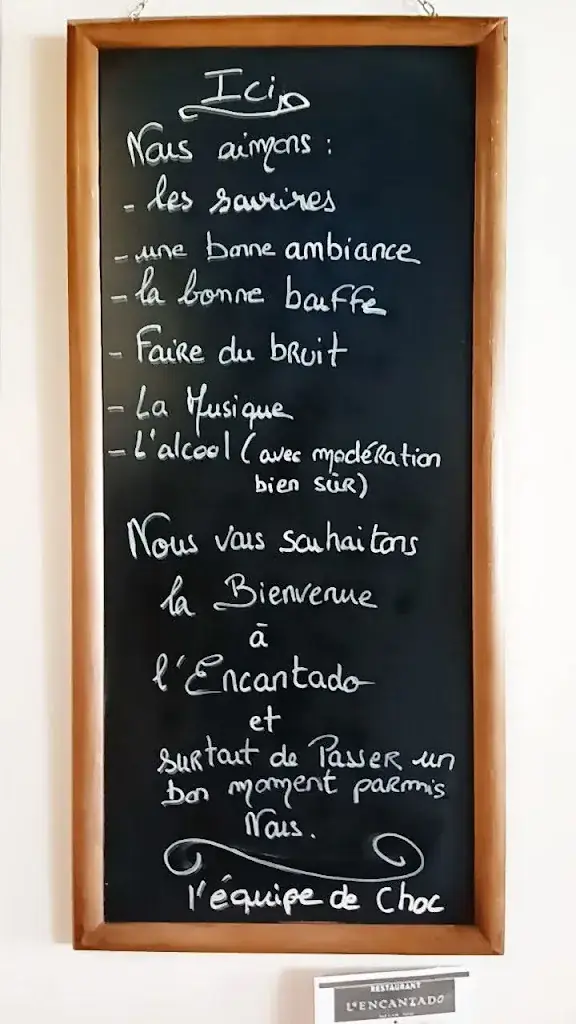 Ici
Nous aimons :
- les sourires
- une bonne ambiance
- la bonne bouffe
- Faire du bruit
- La Musique
- L'alcool (avec modération
bien sûr)
Nous vous souhaitons
la Bienvenue
à
l'Encantado
et
surtout de Passer un
bon moment parmis
Nous.
l'équipe de Choc
RESTAURANT
L'ENCANTADO